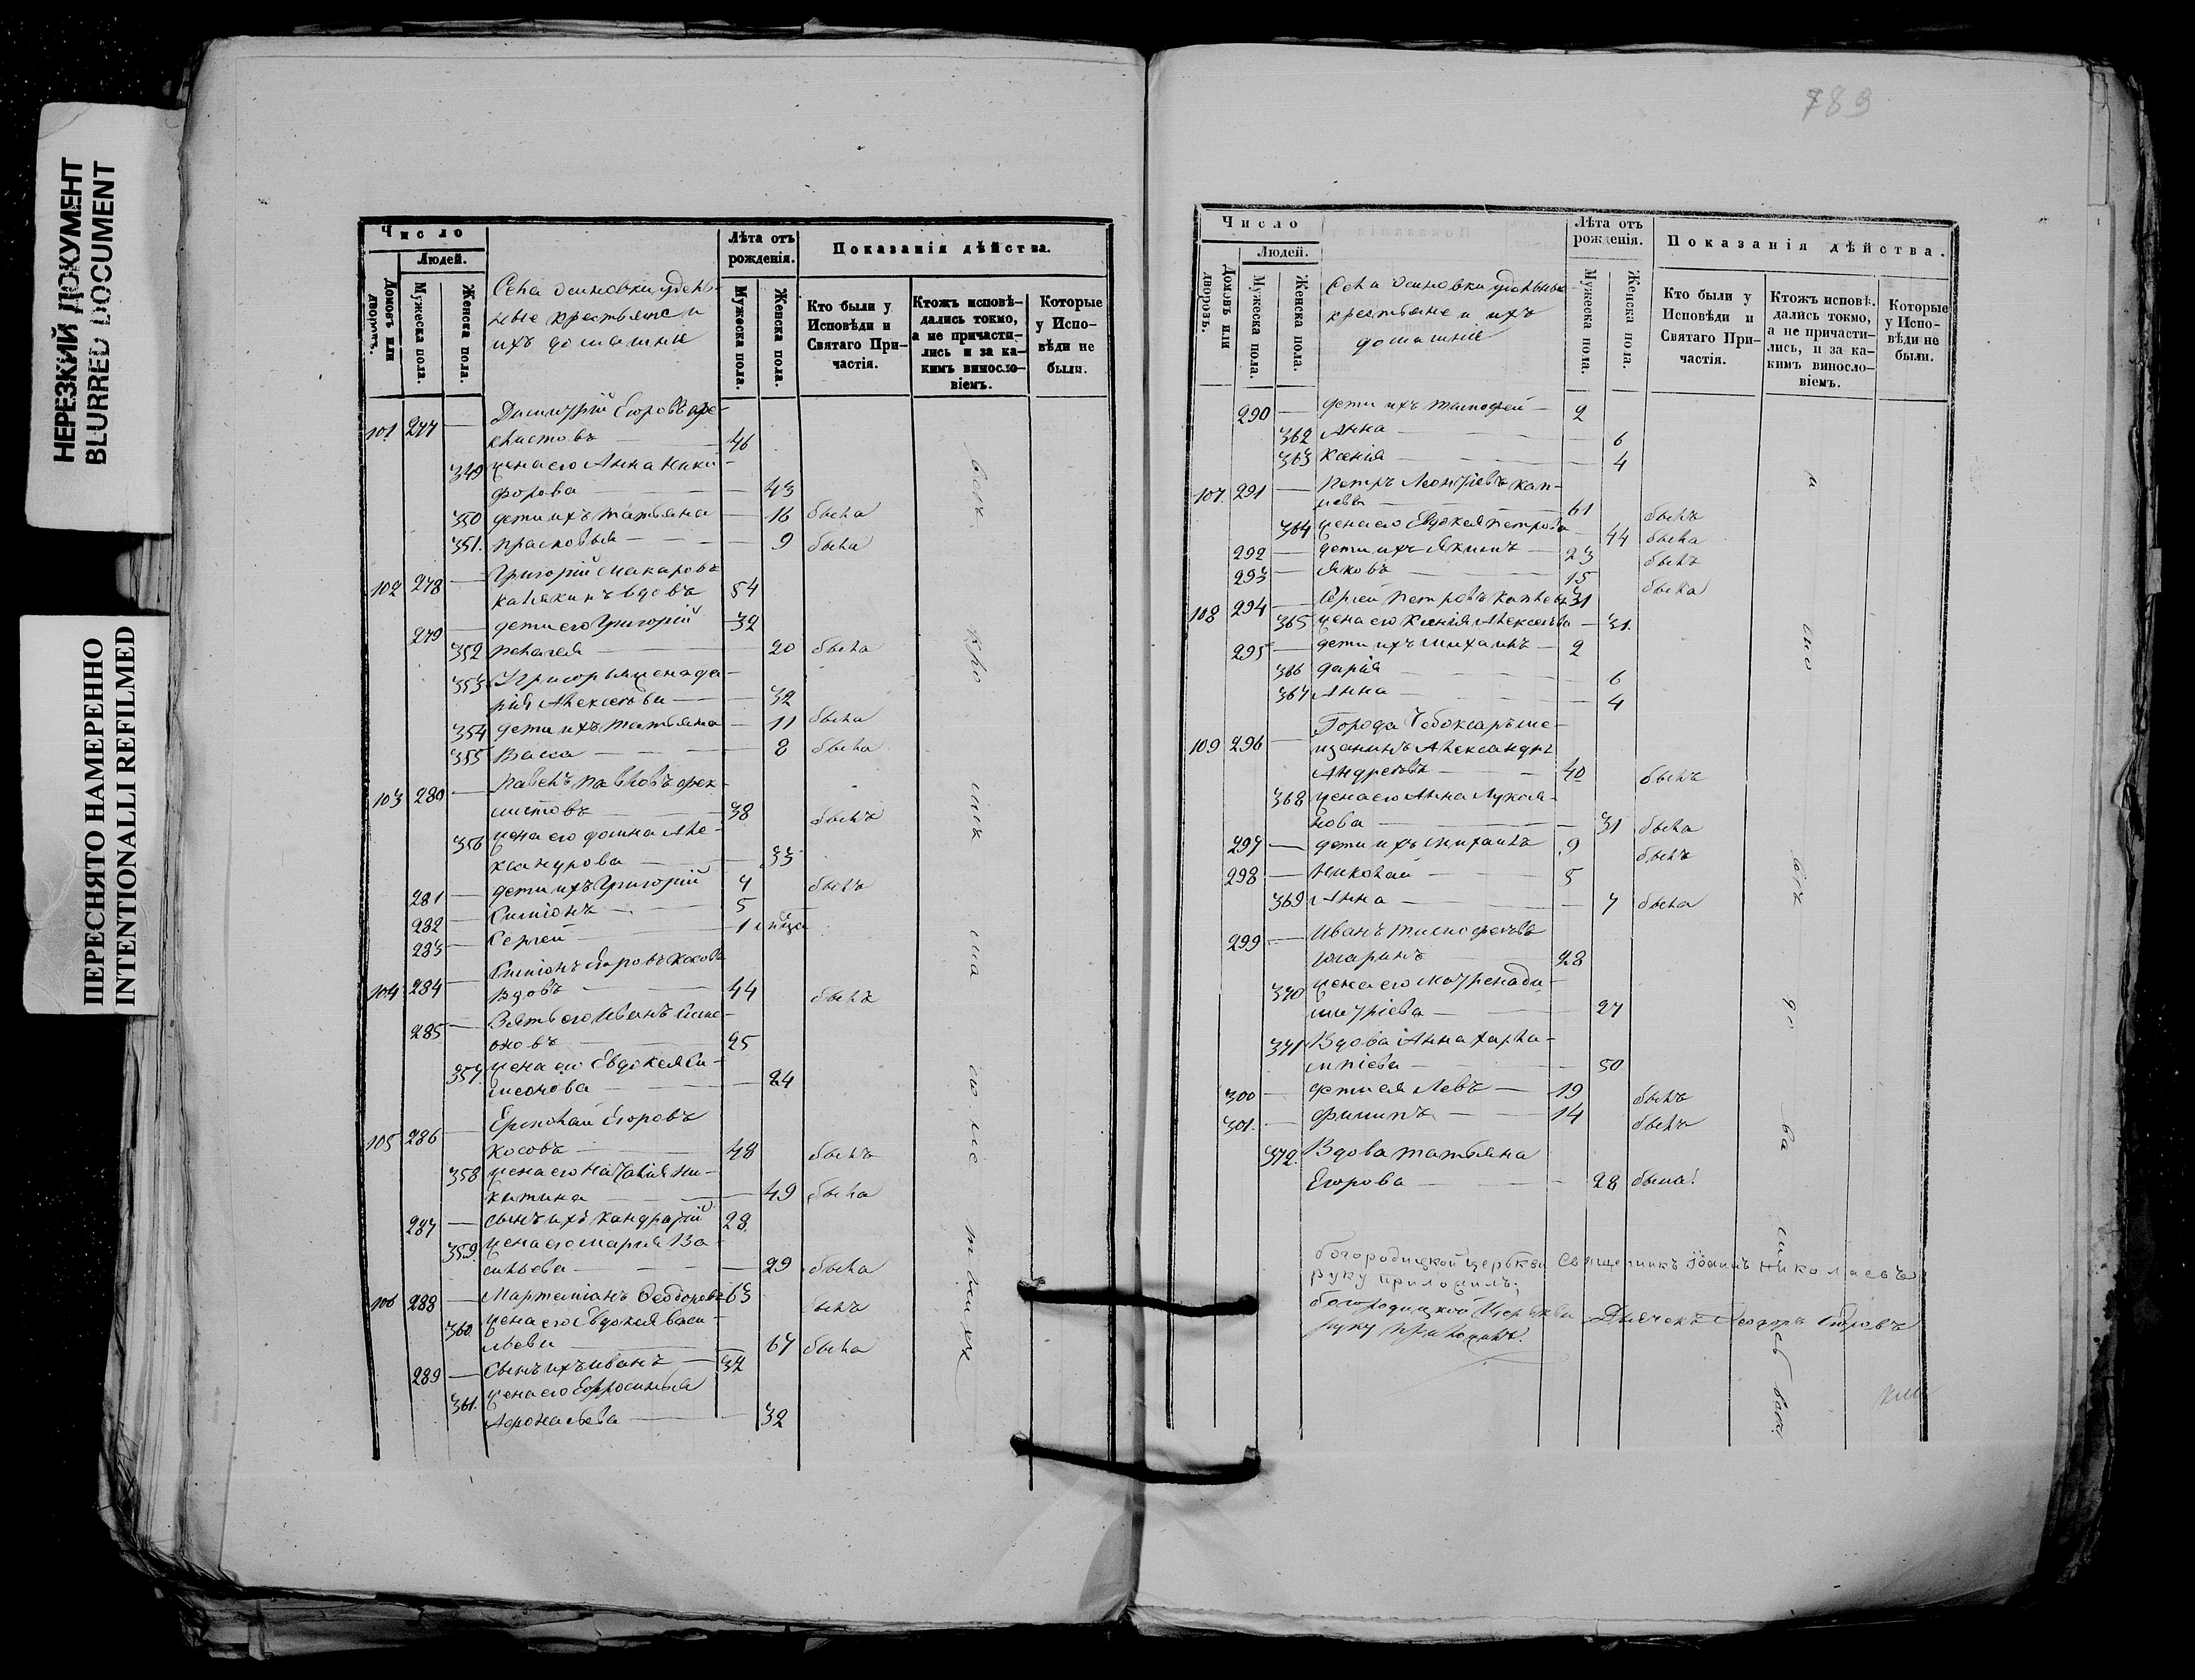 НЕРЕЗКИЙ ДОКУМЕНТ
BLURRED DOCUMENT
ПЕРЕСНЯТО НАМЕРЕННО
INTENTIONALLI REFILMED
Число
Людей.
Домовъ или дворовъ.
Мужеска пола.
Женска пола.
Села Осиновки удѣль-
ные крестьяне и
ихъ домашніе
Лѣта отъ рожденія.
Мужеска пола.
Женска пола.
Показанія дѣйства.
Кто были у Исповѣди и Святаго При-частія.
Ктожъ исповѣ-дались токмо, а не причасти-лись и за ка-кимъ винословіемъ.
Которые у Испо-вѣди не были.
101 277 — Димитрій Егоровъ фе-
клистовъ — 46
349 жена его Анна Ники-
форова — 43
350 дети ихъ Татьяна — 16 была
351. Прасковья — 9 была
102 278 — Григорій Макаровъ
вдовъ 54
279 — дети его Григорій 32
352 Пелагея — 20 была
353 У Григорья жена да-
рія Алексеева — 32
354 дети ихъ Татьяна — 11 была
355 Васса — 8 была
103 280 — Павелъ Павловъ фек-
листовъ — 38 былъ
356 жена его домна Але-
ксандрова — 33
281 — дети ихъ Григорій 7 былъ
282 — Симіонъ — 5
283 — Сергей — 1
104 284 — Симіонъ Егоровъ Косовъ
вдовъ — 44 былъ
285 — Зять его Иванъ Симе-
оновъ — 25
357. жена его Евдокея Си-
меонова — 24
105 286 — Ермолай Егоровъ
Косовъ — 48 былъ
358 жена его Наталия Ни-
китина — 49 была
287 — сынъ ихъ Кандратій 28.
359. жена его Марія Ва-
сильева — 29 была
106 288 — Мартиніанъ Феодоровъ 63 былъ
360. жена его Евдокея Васи-
льева — 67 была
289 — Сынъ ихъ Иванъ — 34
361. жена его Ефросинья
Афонасьева — 32
789
Число
Людей.
Домовъ или дворовъ.
Мужеска пола.
Женска пола.
Села Осиновки удѣльные
крестьяне и ихъ
домашніе
Лѣта отъ рожденія.
Мужеска пола.
Женска пола.
Показанія дѣйства.
Кто были у Исповѣди и Святаго При-частія.
Ктожъ исповѣ-дались токмо, а не причасти-лись, и за ка-кимъ винословіемъ.
Которые у Испо-вѣди не были.
290 — дети ихъ Тимофей — 2
362 Анна — 6
363 Ксенія — 4
107. 291 — Петръ Леонтіевъ
61 былъ
364 жена его Евдокея Петрова 44 была
292 — дети ихъ Якимъ — 23 былъ
293 — Яковъ 15
108 294 — Сергей Петровъ 31
365 жена его Ксенія Алексеева — 31.
295 — дети ихъ Михаилъ — 2
366 Дарія — 6
367 Анна — 4
109 296 — Города Чебоксаръ ме-
щанинъ Александръ
Андреевъ — 40 былъ
368 жена его Анна Лукоя-
нова — 31 была
297 — дети ихъ Михаилъ 9 былъ
298 — Николай — 5
369 Анна — 7 была
299 — Иванъ Тимофеевъ
28
370 жена его Матрена Ди-
митріева — 27
371 Вдова Анна Харла-
мпіева — 50
300 — дети ея Левъ — 19 былъ
301. — Филипъ — 14 былъ
372. Вдова Татьяна
Егорова — 28 была
богородицкой церькви Священникъ Іоаннъ Николаевъ
руку приложилъ;
богородицкой Церькви Дьячекъ Феодоръ
руку приложилъ.